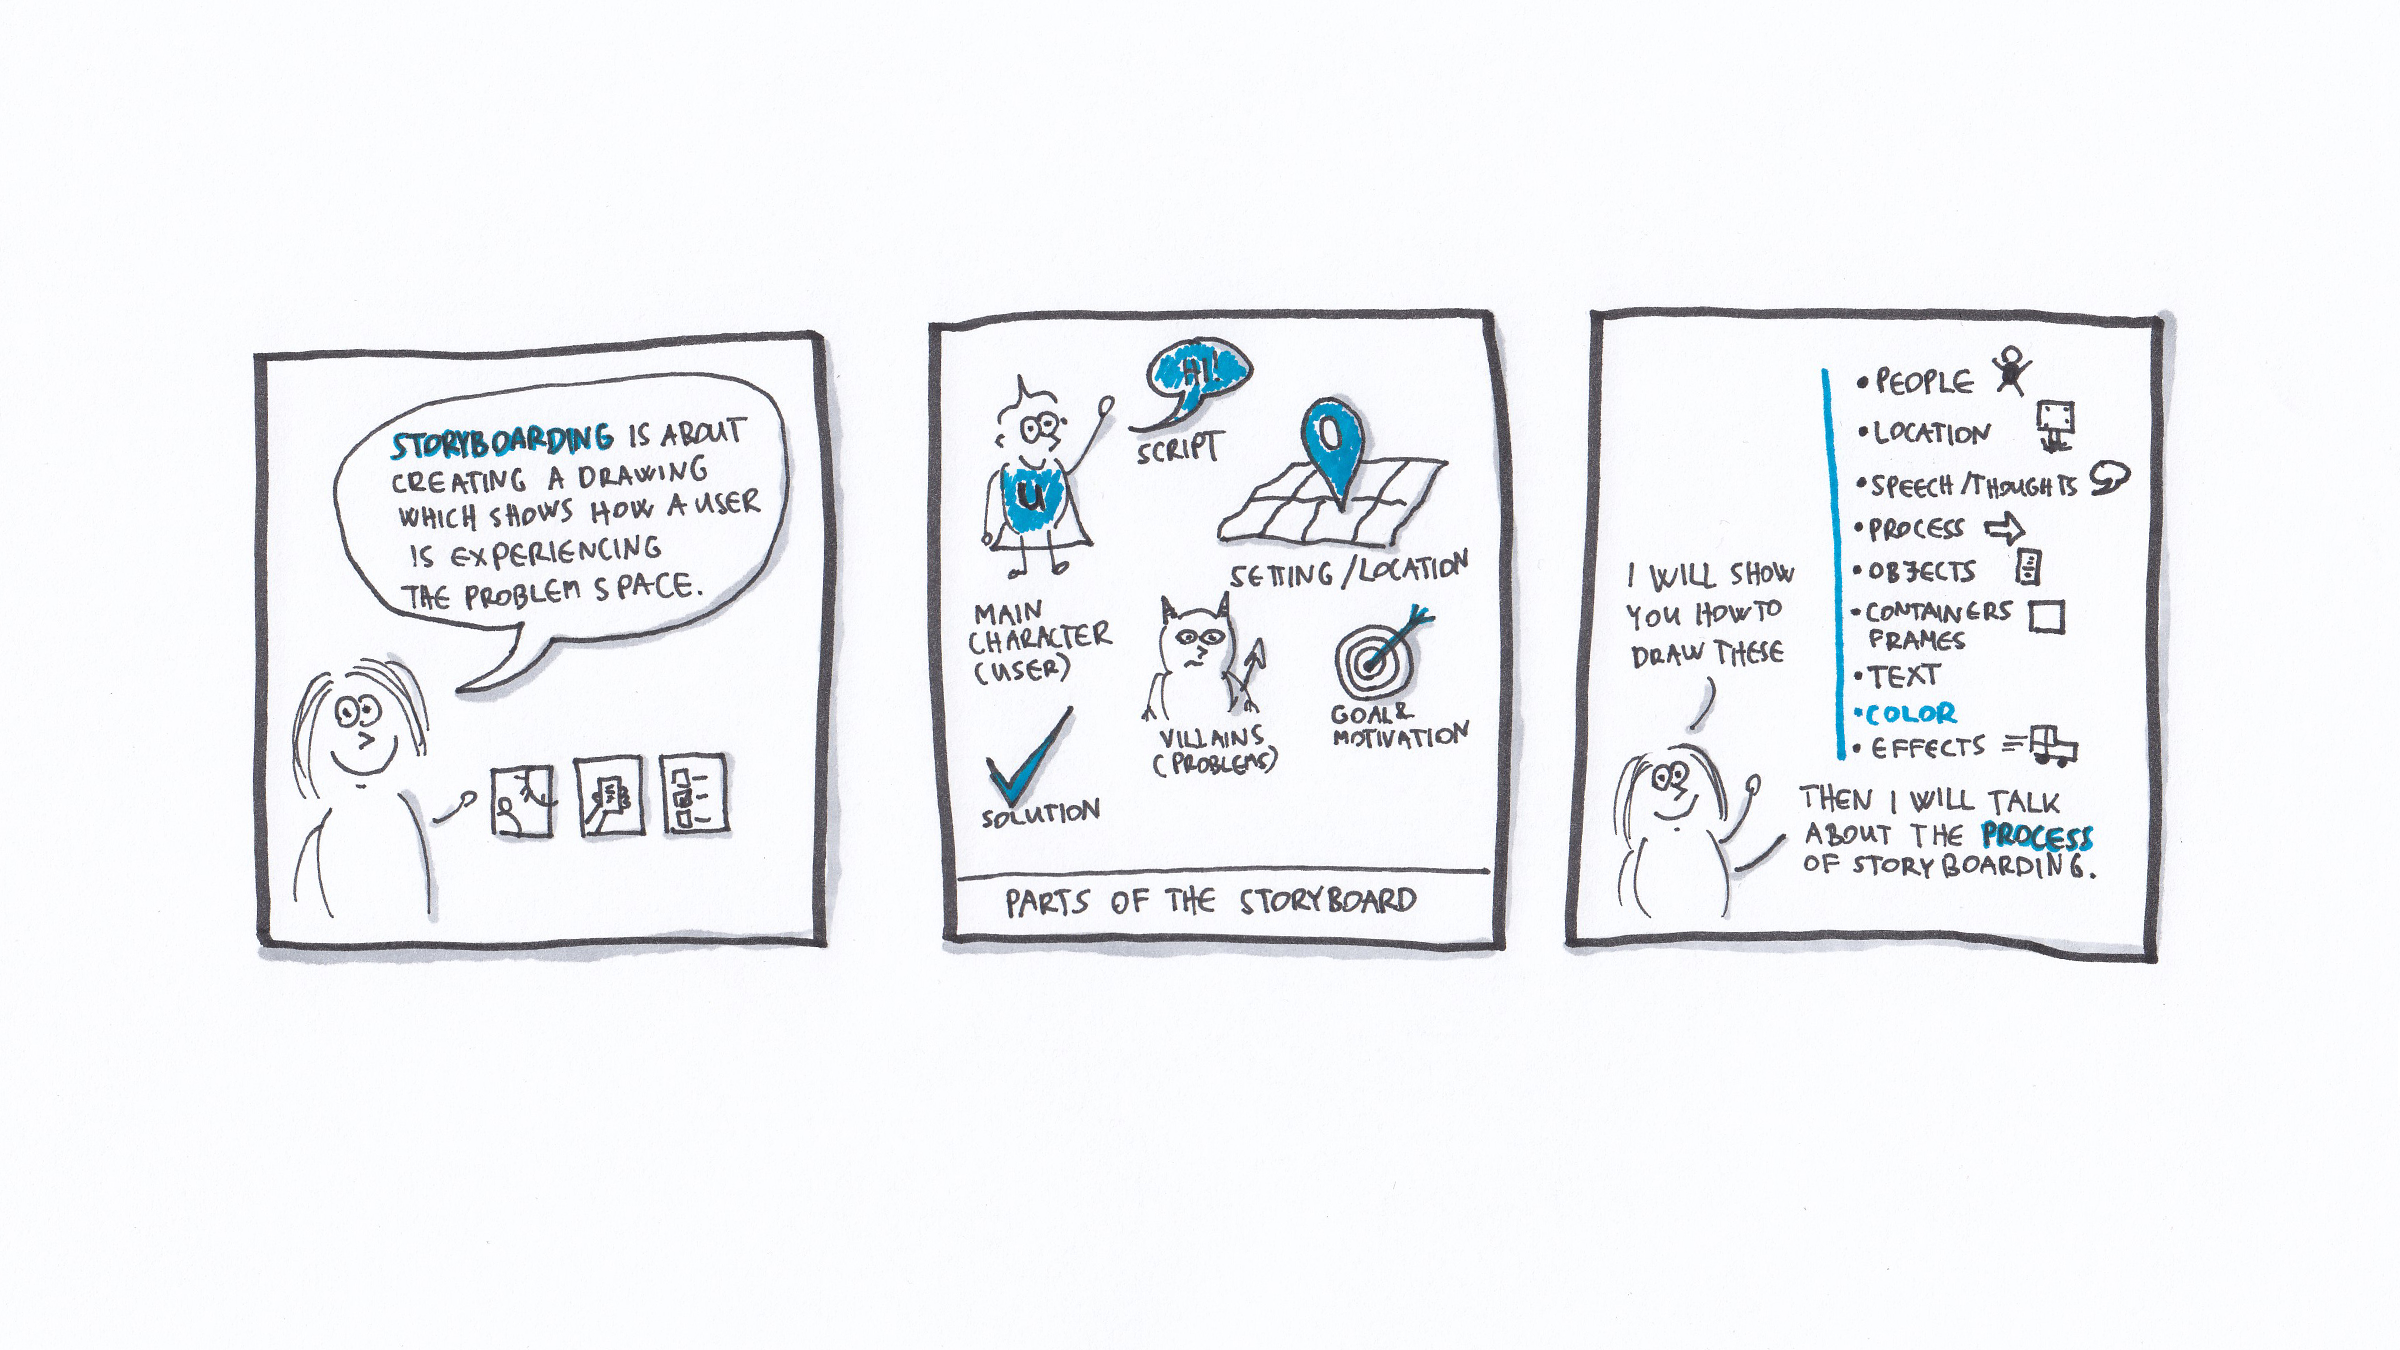 STORYBOARDING IS ABOUT
CREATING A DRAWING
WHICH SHOWS HOW A USER
IS EXPERIENCING
THE PROBLEM SPACE.
HI!
SCRIPT
U
MAIN
CHARACTER
(USER)
SETTING/LOCATION
VILLAINS
(PROBLEMS)
GOAL &
MOTIVATION
SOLUTION
PARTS OF THE STORYBOARD
I WILL SHOW
YOU HOW TO
DRAW THESE
• PEOPLE
• LOCATION
• SPEECH/THOUGHTS
• PROCESS
• OBJECTS
• CONTAINERS
FRAMES
• TEXT
• COLOR
• EFFECTS
THEN I WILL TALK
ABOUT THE PROCESS
OF STORYBOARDING.